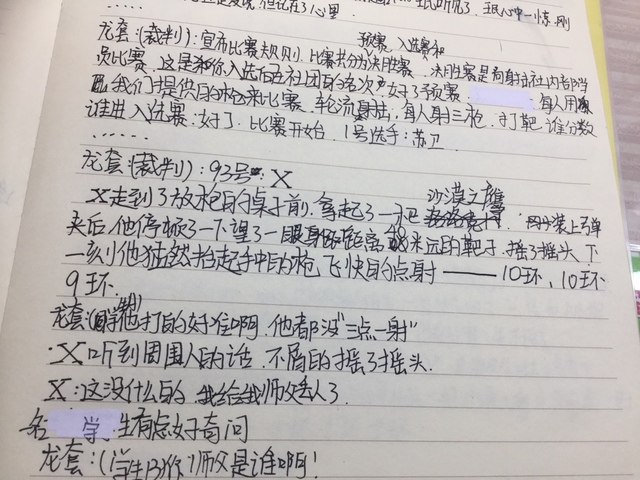 但记在了心里
龙套(裁判):宣布比赛规则,比赛共分为预赛、入选赛和决胜赛。决胜赛是向射击社内者
员比赛,这是你入选后在社团的名次。好了预赛 每人用
我们提供的枪来比赛,轮流射击,每人射三枪,打靶 谁分数
谁进入选赛:好了,比赛开始,1号选手:苏卫
······
龙套(裁判):93号:X
X走到了放枪的桌子前,拿起了一把沙漠之鹰 装上弹
夹后,他停顿了一下望了一眼 距离48米远的靶子,摇了摇头,下
一刻他猛然抬起手中的枪,飞快的点射——10环,10环
9环.
龙套: 他打的好准啊,他都没"三点一射"
X听到周围人的话,不屑的摇了摇头.
X:这没什么的,我给我师父丢人了.
名 学 生有点好奇问
龙套:(学生B)你师父是谁啊!